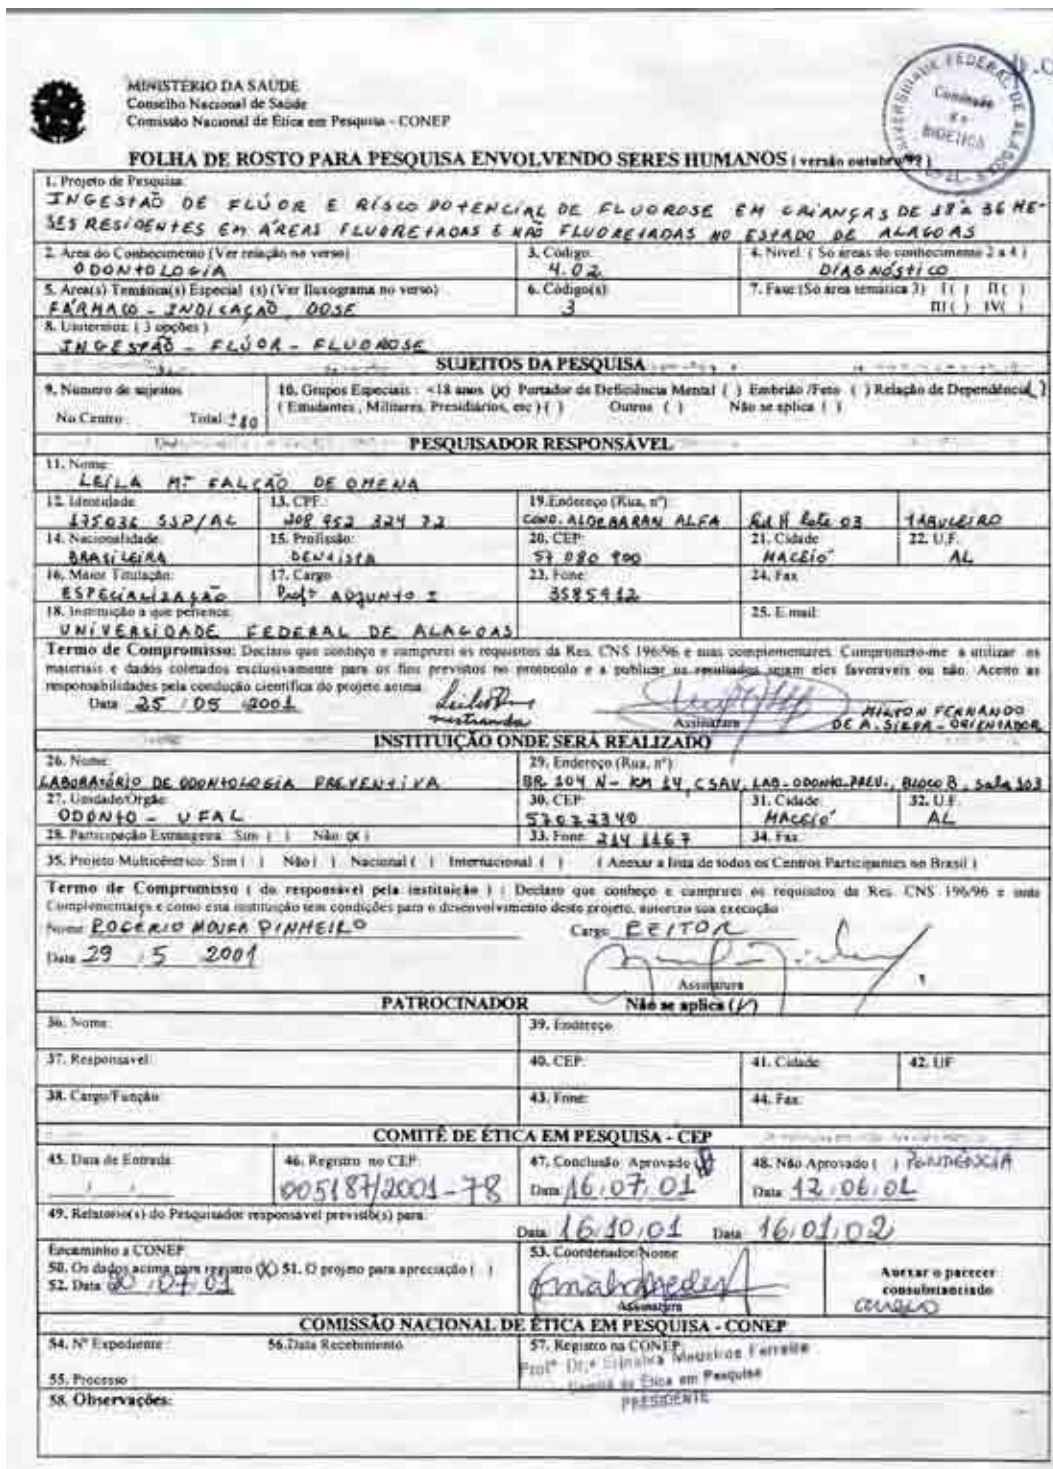 MINISTÉRIO DA SAÚDE
Conselho Nacional de Saúde
Comissão Nacional de Ética em Pesquisa - CONEP
UNIVERSIDADE FEDERAL DE ALAGOAS
Comissão de BIOÉTICA
FOLHA DE ROSTO PARA PESQUISA ENVOLVENDO SERES HUMANOS ( versão outubro/99 )
1. Projeto de Pesquisa:
INGESTÃO DE FLÚOR E RISCO POTENCIAL DE FLUOROSE EM CRIANÇAS DE 18 A 36 ME-
SES RESIDENTES EM ÁREAS FLUORETADAS E NÃO FLUORETADAS NO ESTADO DE ALAGOAS
2. Área do Conhecimento (Ver relação no verso) 3. Código: 4. Nível: ( Só áreas do conhecimento 2 a 4 )
ODONTOLOGIA 4.02 DIAGNÓSTICO
5. Área(s) Temática(s) Especial (s) (Ver fluxograma no verso) 6. Código(s): 7. Fase:(Só área temática 3) I( ) II( )
FÁRMACO - INDICAÇÃO, DOSE 3 III( ) IV( )
8. Unitermos: ( 3 opções )
INGESTÃO - FLÚOR - FLUOROSE
SUJEITOS DA PESQUISA
9. Número de sujeitos 10. Grupos Especiais : <18 anos (X) Portador de Deficiência Mental ( ) Embrião /Feto ( ) Relação de Dependência( )
( Estudantes , Militares, Presidiários, etc ) ( ) Outros ( ) Não se aplica ( )
No Centro: Total: ±80
PESQUISADOR RESPONSÁVEL
11. Nome:
LEILA Mª FALCÃO DE OMENA
12. Identidade: 13. CPF: 19.Endereço (Rua, nº):
175036 SSP/AL 208 952 324 72 COND. ALDEBARAN ALFA Rd H Lote 03 TABULEIRO
14. Nacionalidade: 15. Profissão: 20. CEP: 21. Cidade 22. U.F.
BRASILEIRA DENTISTA 57 080 900 MACEIÓ AL
16. Maior Titulação: 17. Cargo 23. Fone: 24. Fax
ESPECIALIZAÇÃO Profª ADJUNTO I 3585912
18. Instituição a que pertence: 25. E.mail:
UNIVERSIDADE FEDERAL DE ALAGOAS
Termo de Compromisso: Declaro que conheço e cumprirei os requisitos da Res. CNS 196/96 e suas complementares. Comprometo-me a utilizar os
materiais e dados coletados exclusivamente para os fins previstos no protocolo e a publicar os resultados sejam eles favoráveis ou não. Aceito as
responsabilidades pela condução científica do projeto acima.
Data 25 / 05 /2001 mestranda Assinatura MILTON FERNANDO
DE A. SILVA - ORIENTADOR
INSTITUIÇÃO ONDE SERÁ REALIZADO
26. Nome: 29. Endereço (Rua, nº):
LABORATÓRIO DE ODONTOLOGIA PREVENTIVA BR 104 N- KM 14, CSAU, LAB. ODONTO.PREV., BLOCO B, sala 103
27. Unidade/Orgão: 30. CEP: 31. Cidade: 32. U.F.
ODONTO - UFAL 57072340 MACEIÓ AL
28. Participação Estrangeira: Sim ( ) Não (X) 33. Fone: 214 1167 34. Fax:
35. Projeto Multicêntrico: Sim ( ) Não ( ) Nacional ( ) Internacional ( ) ( Anexar a lista de todos os Centros Participantes no Brasil )
Termo de Compromisso ( do responsável pela instituição ) : Declaro que conheço e cumprirei os requisitos da Res. CNS 196/96 e suas
Complementares e como esta instituição tem condições para o desenvolvimento deste projeto, autorizo sua execução
Nome: ROGÉRIO MOURA PINHEIRO Cargo REITOR
Data 29 / 5 2001
Assinatura
PATROCINADOR Não se aplica (✓)
36. Nome: 39. Endereço
37. Responsável: 40. CEP: 41. Cidade: 42. UF
38. Cargo/Função: 43. Fone: 44. Fax:
COMITÊ DE ÉTICA EM PESQUISA - CEP
45. Data de Entrada: 46. Registro no CEP: 47. Conclusão: Aprovado (X) 48. Não Aprovado ( ) PENDÊNCIA
005187/2001-78 Data 16/07/01 Data 12/06/01
49. Relatório(s) do Pesquisador responsável previsto(s) para:
Data 16/10/01 Data 16/01/02
Encaminho a CONEP: 53. Coordenador/Nome
50. Os dados acima para registro (X) 51. O projeto para apreciação ( ) Anexar o parecer
52. Data: 20/07/01 Assinatura consubstanciado
anexo
COMISSÃO NACIONAL DE ÉTICA EM PESQUISA - CONEP
54. Nº Expediente : 56.Data Recebimento 57. Registro na CONEP:
Profª Dr.ª Ferreira
55. Processo : Comitê de Ética em Pesquisa
PRESIDENTE
58. Observações: